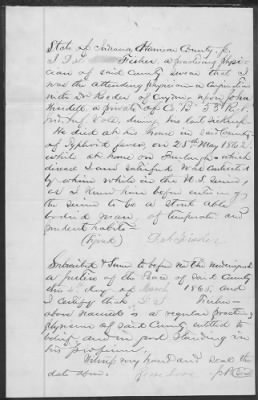 State of Indiana Harrison County, ss.
I, D. S. Fisher, a practicing physi-
cian of said County swear that I
was the attending physician in conjunction
with Dr of upon John
a private of Co. "B" 53 R.
Ind. Vols, during his last sickness.
He died at his home in said County
of Typhoid fever, on 25th May 1862,
while at home on Furlough - which
disease I am satisfied was contracted
by whim while in the U.S. service,
as I knew him before entering
the service to be a stout able
bodied man, of temperate and
prudent habits
(Signed)
Subscribed & Sworn to before me the undersigned
a justice of the Peace of said County
this day of March 1865, and
I certify that D. S. Fisher
above named is a regular practicing
physician of said County entitled to
belief, and in good standing in
his profession,
Witness my hand and seal the
date above.